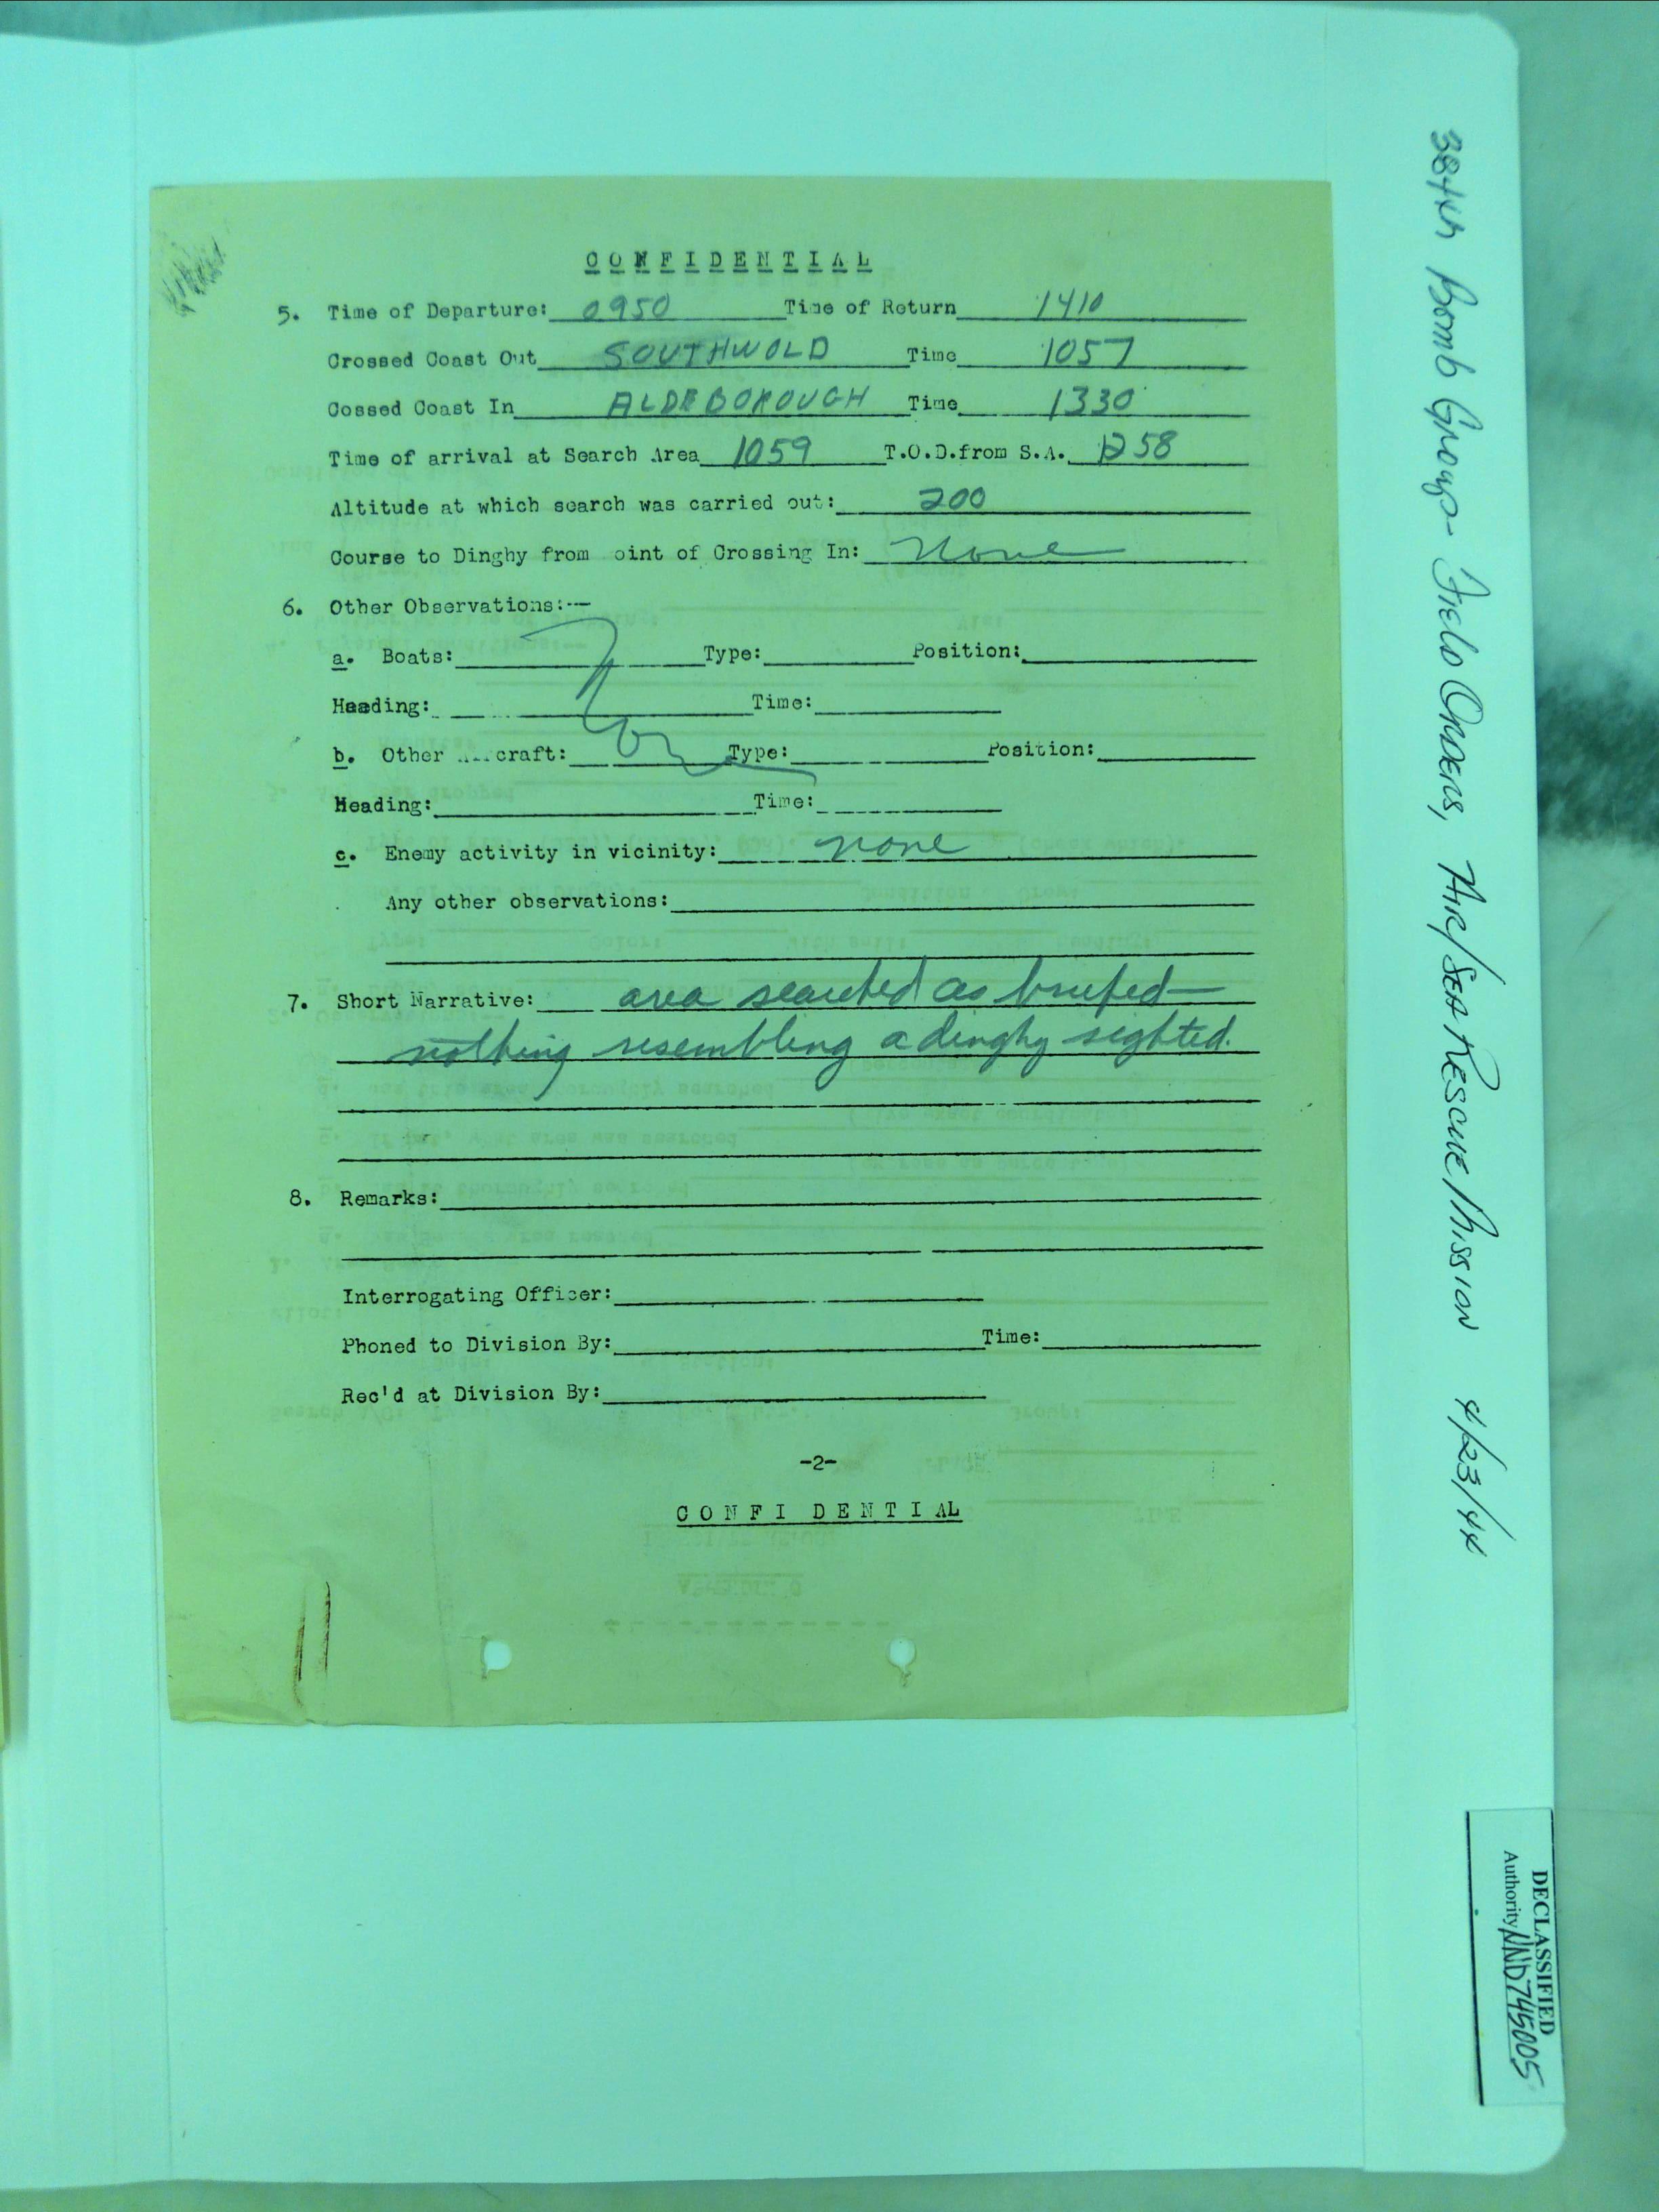 CONFIDENTIAL
5. Time of Departure: 0950 Time of Return 1410
Crossed Coast Out SOUTHWOLD Time 1057
Cossed Coast In ALDEBOROUGH Time 1330
Time of arrival at Search Area 1059 T.O.D.from S.A. 1258
Altitude at which search was carried out: 200
Course to Dinghy from oint of Crossing In: None
6. Other Observations:--
a. Boats: Type: Position:
Heading: Time:
None
b. Other craft: Type: Position:
Heading: Time:
c. Enemy activity in vicinity: none
Any other observations:
7. Short Narrative: area searched as briefed—
nothing resembling a dinghy sighted.
8. Remarks:
Interrogating Officer:
Phoned to Division By: Time:
Rec'd at Division By:
-2-
CONFIDENTIAL
384th Bomb Group- Field Orders, Air/Sea Rescue Mission 4/23/44
DECLASSIFIED
Authority NND745005